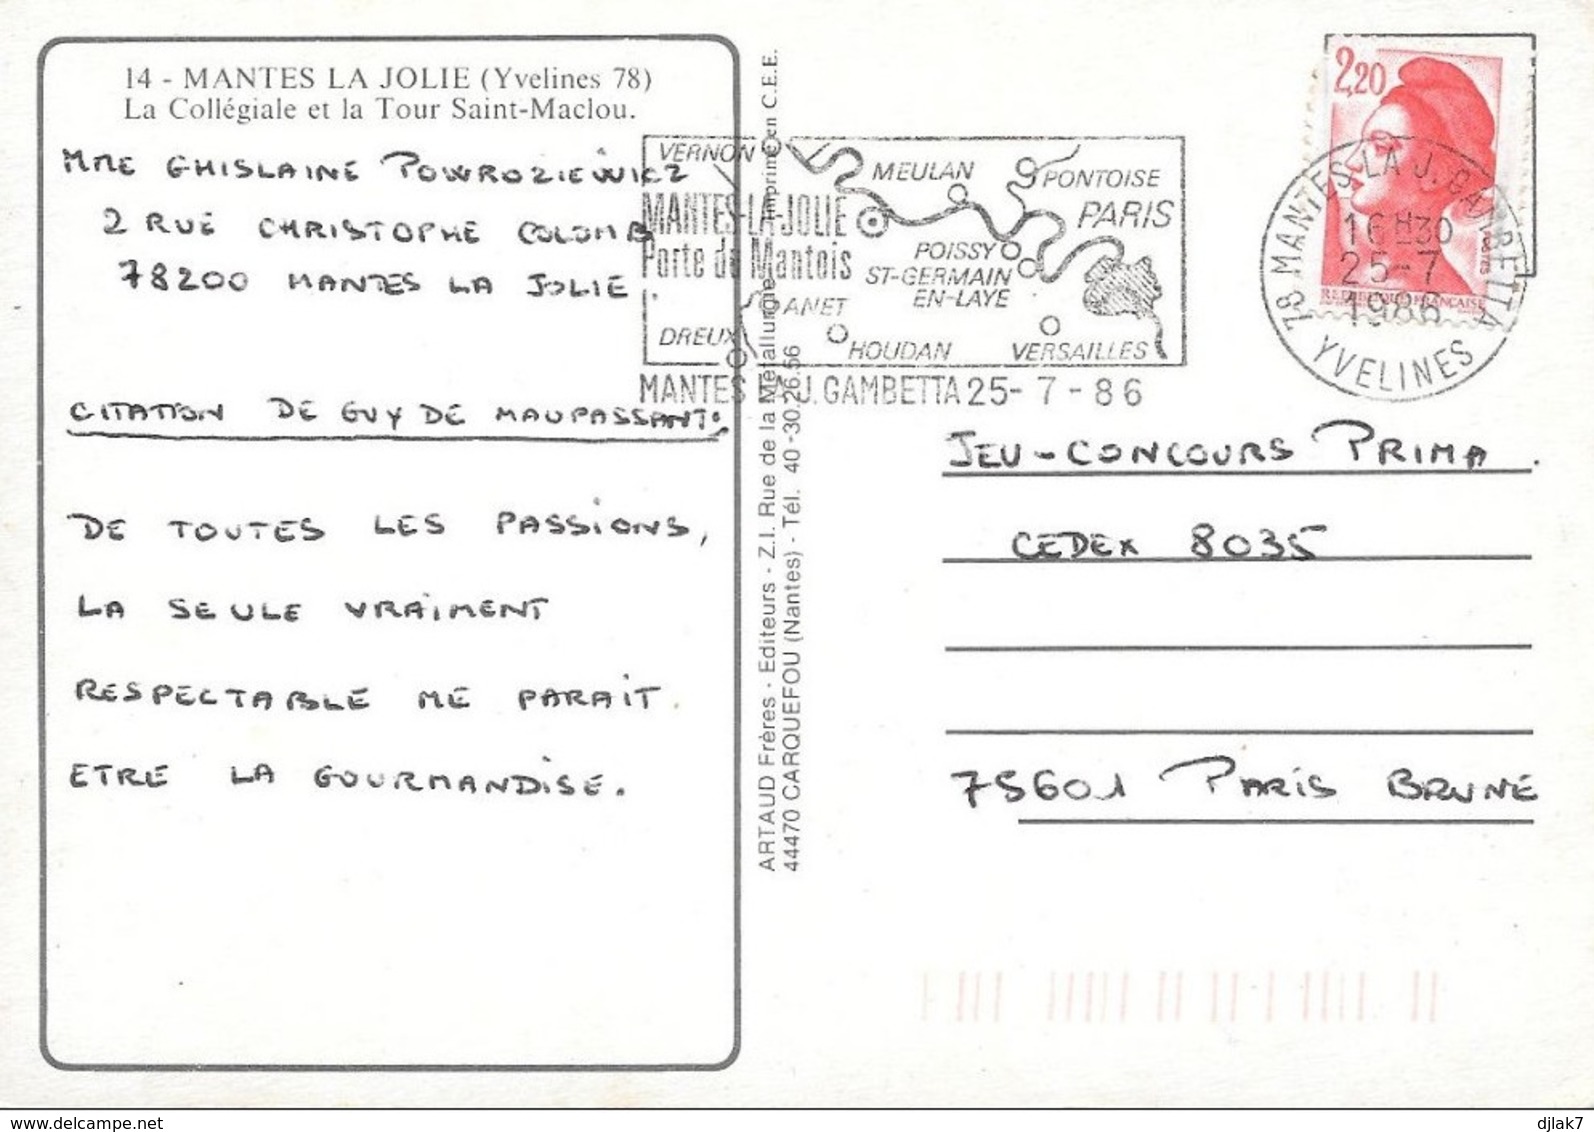 14 - MANTES LA JOLIE (Yvelines 78)
La Collégiale et la Tour Saint-Maclou.
MME GHISLAINE POWROZIEWICZ
2 RUE CHRISTOPHE COLOMB
78200 MANTES LA JOLIE.
CITATION DE GUY DE MAUPASSANT:
DE TOUTES LES PASSIONS,
LA SEULE VRAIMENT
RESPECTABLE ME PARAIT
ETRE LA GOURMANDISE.
ARTAUD Frères - Editeurs - Z.I. Rue de la Métallurgie Imprimé en C.E.E.
44470 CARQUEFOU (Nantes) - Tél. 40-30.26.56
VERNON
MEULAN
PONTOISE
MANTES-LA-JOLIE
PARIS
Porte du Mantois
POISSY
ST-GERMAIN
EN-LAYE
ANET
DREUX
HOUDAN
VERSAILLES
MANTES LA J. GAMBETTA 25-7-86
2,20
REPUBLIQUE FRANÇAISE
POSTES
78 MANTES-LA J. GAMBETTA
16H30
25-7
1986
YVELINES
JEU-CONCOURS PRIMA.
CEDEX 8035
75601 PARIS BRUNE
djlak7